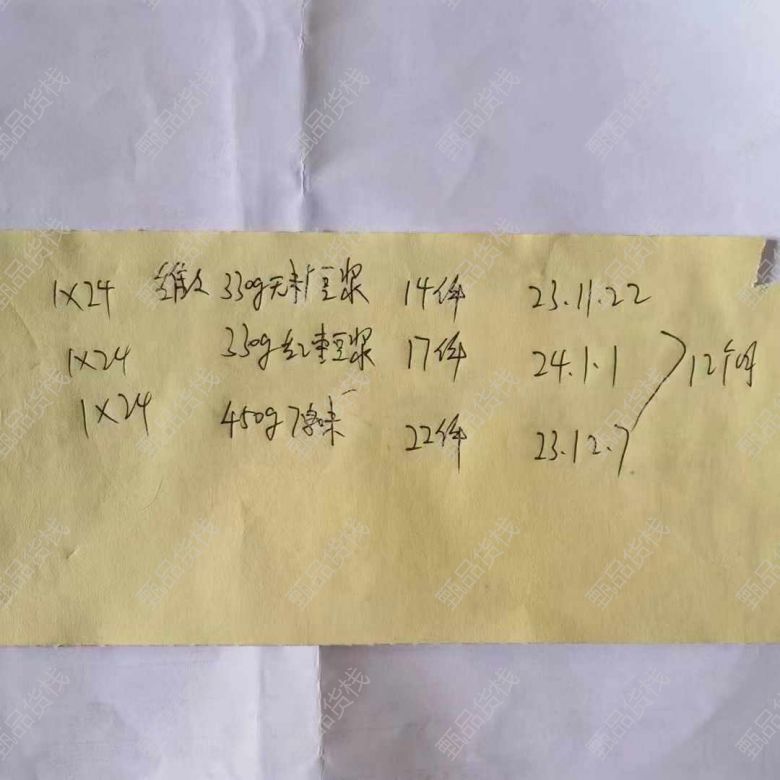 1×24 维他 330g无糖豆浆 14件 23.11.22
1×24 330g红枣豆浆 17件 24.1.1 12个月
1×24 450g 原味 22件 23.12.7
甄品货栈